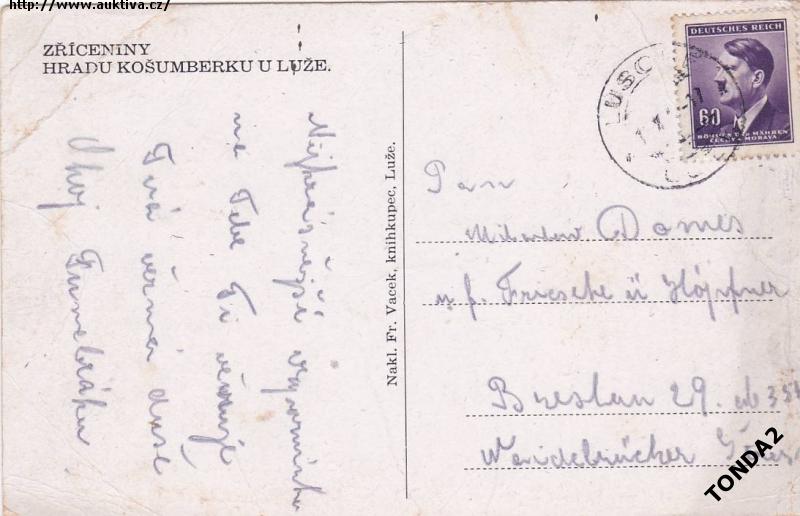 http://www.auktiva.cz/
ZŘÍCENINY
HRADU KOŠUMBERKU U LUŽE.
Nejkrásnější vzpomínku
na Tebe Ti věnuje
Tvá věrná duše
Ahoj
Nakl. Fr. Vacek, knihkupec, Luže.
DEUTSCHES REICH
60
BÖHMEN UND MÄHREN
ČECHY A MORAVA
Pan
Miloslav Domes
u f. Friesche ü Höpfner
Breslau 29.
TONDA2